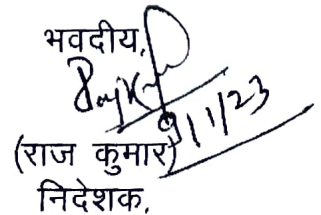 भवदीय,
9/1/23
(राज कुमार)
निदेशक,